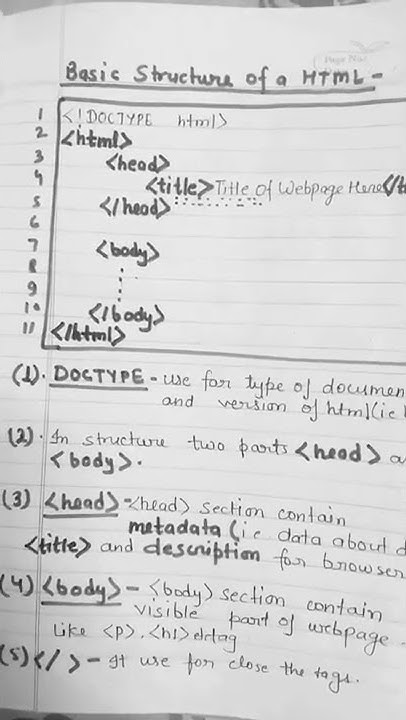 Page No:
Basic Structure of a HTML -
1 <!DOCTYPE html>
2 <html>
3 <head>
4 <title>Title of Webpage Here</t
5 </head>
6
7 <body>
8
9
10 </body>
11 </html>
(1). DOCTYPE - use for type of documen
and version of html(i.e
(2). In structure two parts <head> a
<body>.
(3) <head> - <head> section contain
metadata (i.e data about d
<title> and description for browser
(4) <body> - <body> section contain
visible part of webpage.
Like <p>, <h1> etc tag
(5) </ > - It use for close the tags.